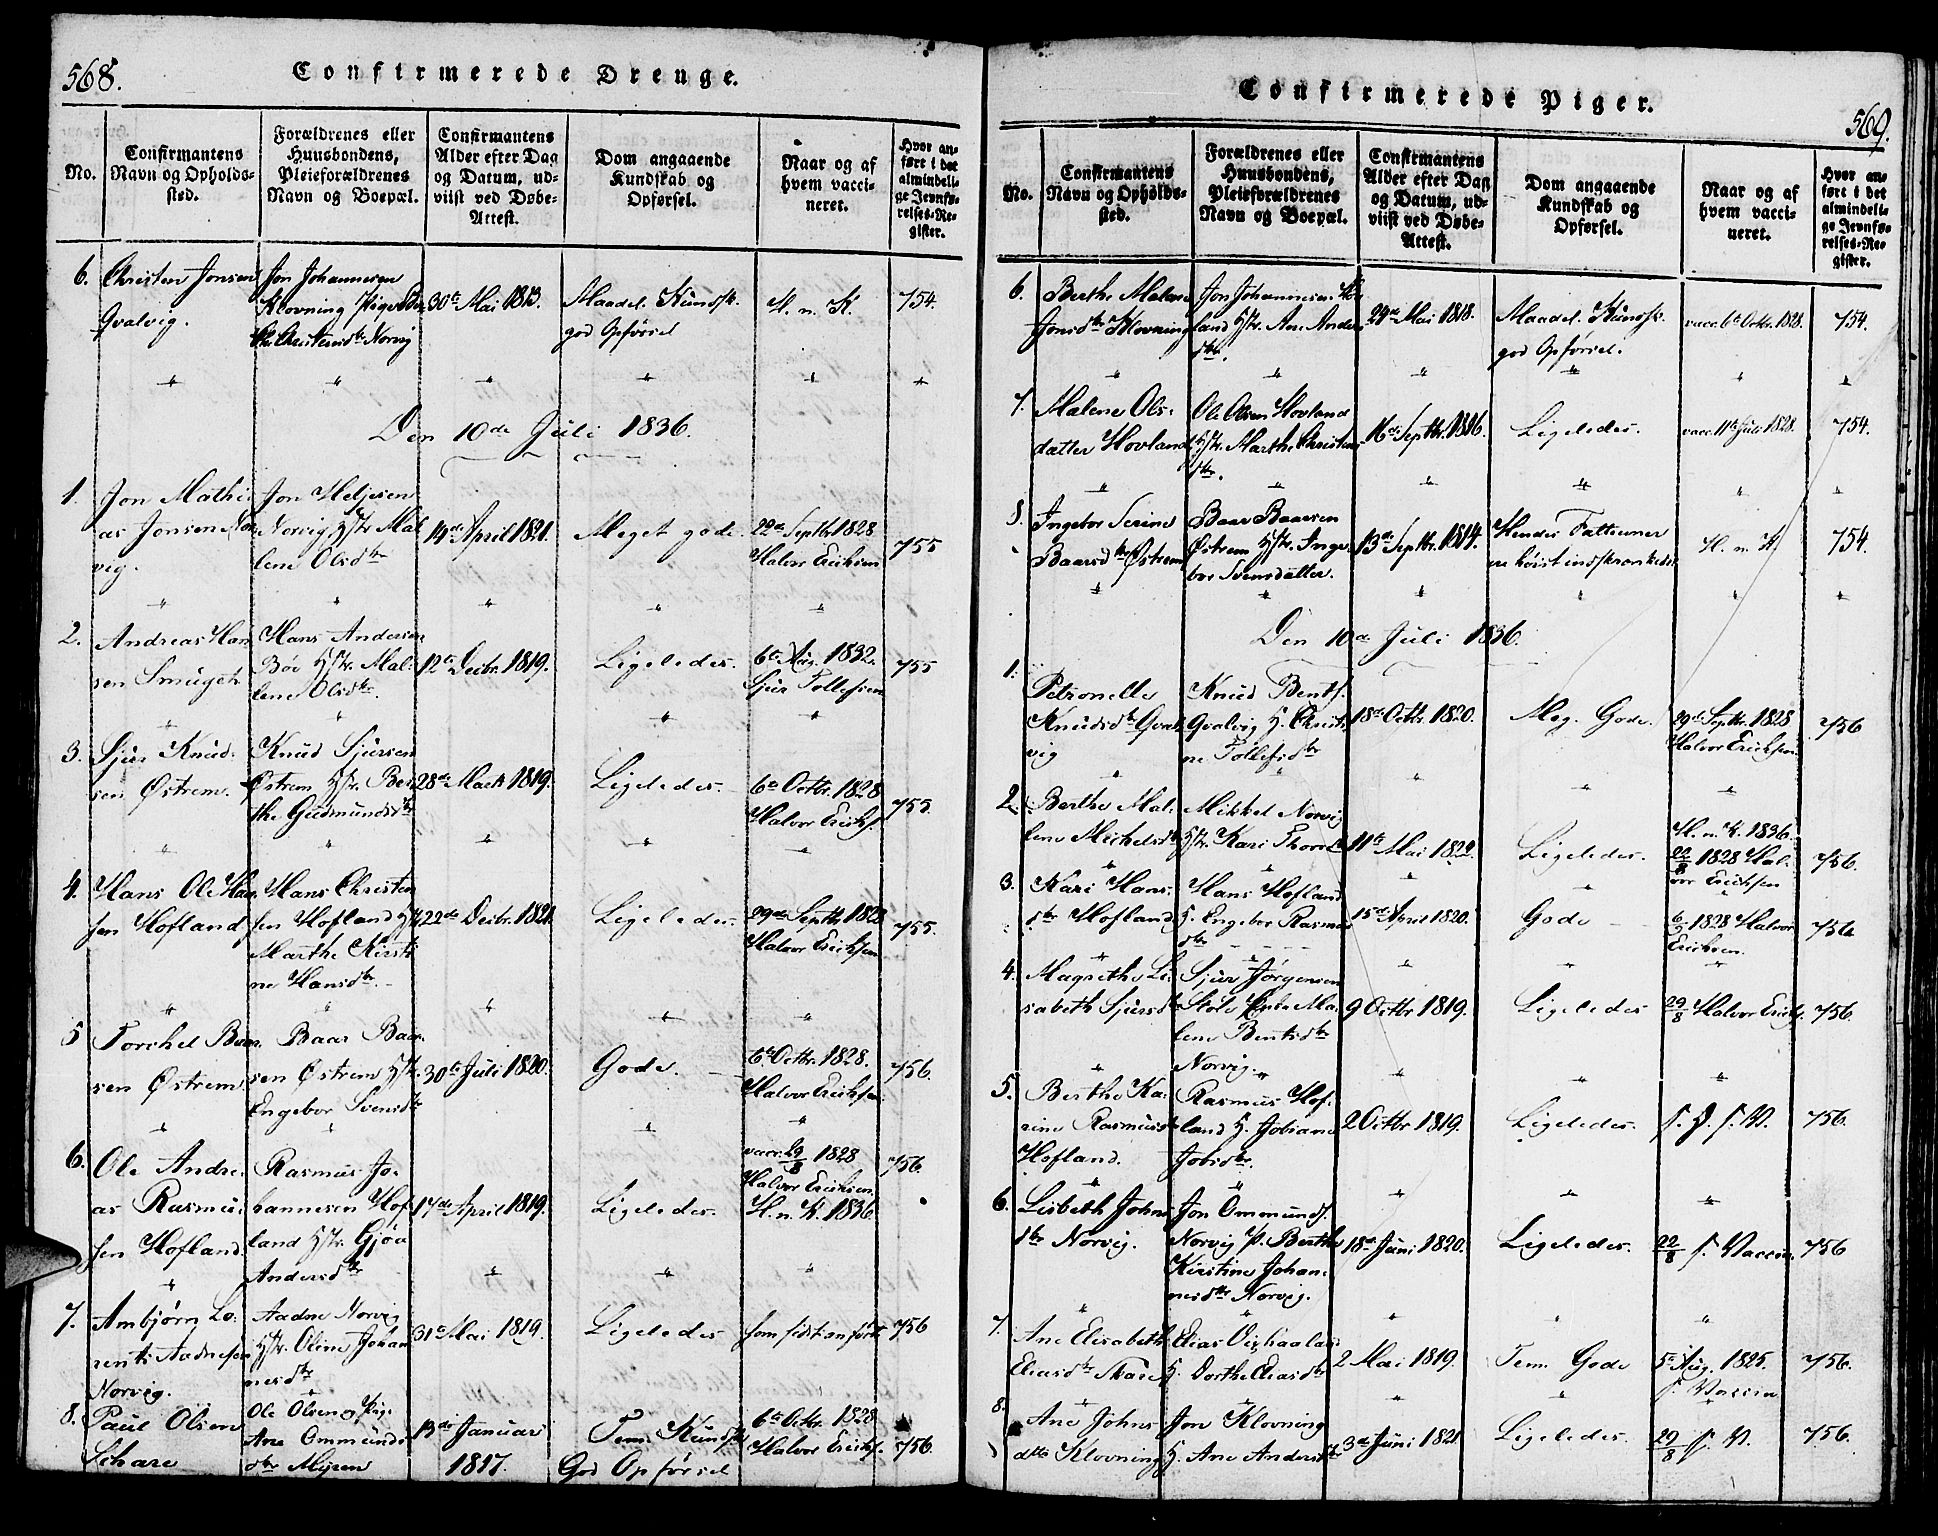 568.
Confirmerede Drenge.
No.
Confirmantens
Navn og Opholds-
sted.
Forældrenes eller
Huusbondens,
Pleieforældrenes
Navn og Boepæl.
Confirmantens
Alder efter Dag
og Datum, ud-
viist ved Døbe-
Attest.
Dom angaaende
Kundskab og
Opførsel.
Naar og af
hvem vacci-
neret.
Hvor an-
ført i det
almindeli-
ge Jevnfø-
relses-Re-
gister.
6.
Christen Jonsen
Qvalvig.
Jon Johannesen
Klovning
Christensdtr Norvig
30te Mai 1813.
Maadel. Kundsk.
god Opførsel
H. n. K.
754.
Den 10de Juli 1836.
1.
Jon Mathi-
as Jonsen Nor-
vig.
Jon Heljesen
Norvig Hstr Mal-
lene Olsdtr
14de April 1821.
Meget gode.
22de Septbr 1828
Halvor Ericksen
755
2.
Andreas Han-
sen Smuget
Hans Andersen
Bøe Hstr. Mal-
lene Olsdtr.
12te Decbr. 1819.
Ligeledes.
6te Aug. 1832.
Sjur Tollefsen
755
3.
Sjur Knud-
sen Østrem.
Knud Sjursen
Østrem Hstr. Ber-
the Gudmundsdtr
28de Marts 1819.
Ligeledes
6te Octbr. 1828
Halvor Ericks.
755.
4.
Hans Ole Han-
sen Hofland
Hans Christen-
sen Hofland H.
Marthe Kirsti-
ne Hansdtr.
22de Decbr. 1821.
Ligeledes.
29de Septbr 1828
Halvor Ericksen
755.
5
Torchel Baar-
sen Østrem
Baar Baar-
sen Østrem Hstr.
Engebor Svensdtr
30te Juli 1820.
Gode.
6te Octbr. 1828.
Halvor Ericksen
756.
6.
Ole Andre-
as Rasmu-
sen Hofland.
Rasmus Jo-
hannesen Hof-
land Hstr. Gjøa
Andersdtr
17de April 1819.
Ligeledes.
vacc. 29/8 1828
Halvor Ericksen
H. n. K. 1836
756.
7.
Ambjørn Lo-
rents Aadnesen
Norvig.
Aadne Norvig
Hstr. Oline Johan-
nesdtr
31te Mai 1819.
Ligeledes
som sidst anført
756
8.
Paul Olsen
Schare
Ole Olsen og Pig.
Ane Ommunds-
dtr Myren
13de Januari
1817.
Tem. Kundsk.
God Opførsel
6te Octbr. 1828
Halvor Ericks.
756.
569.
Confirmerede Piger.
No.
Confirmantens
Navn og Opholds-
sted.
Forældrenes eller
Huusbondens,
Pleieforældrenes
Navn og Boepæl.
Confirmantens
Alder efter Dag
og Datum, ud-
viist ved Døbe-
Attest.
Dom angaaende
Kundskab og
Opførsel.
Naar og af
hvem vacci-
neret.
Hvor an-
ført i det
almindeli-
ge Jevnfø-
relses-Re-
gister.
6.
Berthe Malene
Jonsdtr Klovning
Jon Johannesen
land Hstr. Ane Anders-
dtr.
29de Mai 1818.
Maadel. Kundsk.
god Opførsel.
vacc. 6te Octbr. 1828.
754.
7.
Malene Ols-
datter Hovland
Ole Olsen Hovland
Hstr. Marthe Christens-
dtr.
16de Septbr. 1816.
Ligeledes.
vacc. 11te Juli 1828.
754.
8.
Ingebor Serine
Baarsdtr Østrem
Baar Baarsen
Østrem Hstr. Inge-
bor Svensdatter.
13de Septbr. 1814.
Hendes Fatteevner
ere høist indskrænkede.
H. n. K.
754.
Den 10de Juli 1836.
1.
Petronelle
Knudsdtr Qval-
vig
Knud Bents.
Qvalvig H. Christi-
ne Tollefsdtr
18de Octbr. 1820.
Meg. Gode.
29de Septbr. 1828
Halvor Ericksen
756
2.
Berthe Mal-
lene Michelsdtr
Mikkel Norvig
Hstr. Kari Thorsd.
11te Mai 1822.
Ligeledes.
H. n. K. 1836.
22/8 1828 Hal-
vor Ericksen
756.
3.
Kari Hans-
dtr Hofland
Hans Hofland
H. Engebor Rasmus-
dtr
15de April 1820.
Gode
6/9 1828 Halvor
Ericksen.
756
4.
Magrethe Li-
sabeth Sjursdtr
Sjur Jørgensen
Stole Enke Ma-
lene Bentsdtr
Norvig.
9 Octbr 1819.
Ligeledes
29/8 Halvor Ericks.
756.
5.
Berthe Ka-
rine Rasmusdtr
Hofland.
Rasmus Hof-
land H. Jobiane
Jobsdtr.
2 Octbr. 1819.
Ligeledes.
756.
6.
Lisbeth Johns-
dtr Norvig.
Jon Ommunds.
Norvig p. Berthe
Kirstine Johan-
nesdtr Norvig.
18de Juni 1820.
Ligeledes.
22/8 s. Vaccin
756
7.
Ane Elisabeth
Eliasdtr Skare
Elias
H. Dorthe Eliasdtr
2 Mai 1819.
Tem. Gode
5te Aug. 1825.
s. Vaccin
756.
8.
Ane Johns-
dtr Klovning
Jon Klovning
H. Ane Andersdtr
3de Juni 1821
Ligeledes.
29/8 s. V.
756.